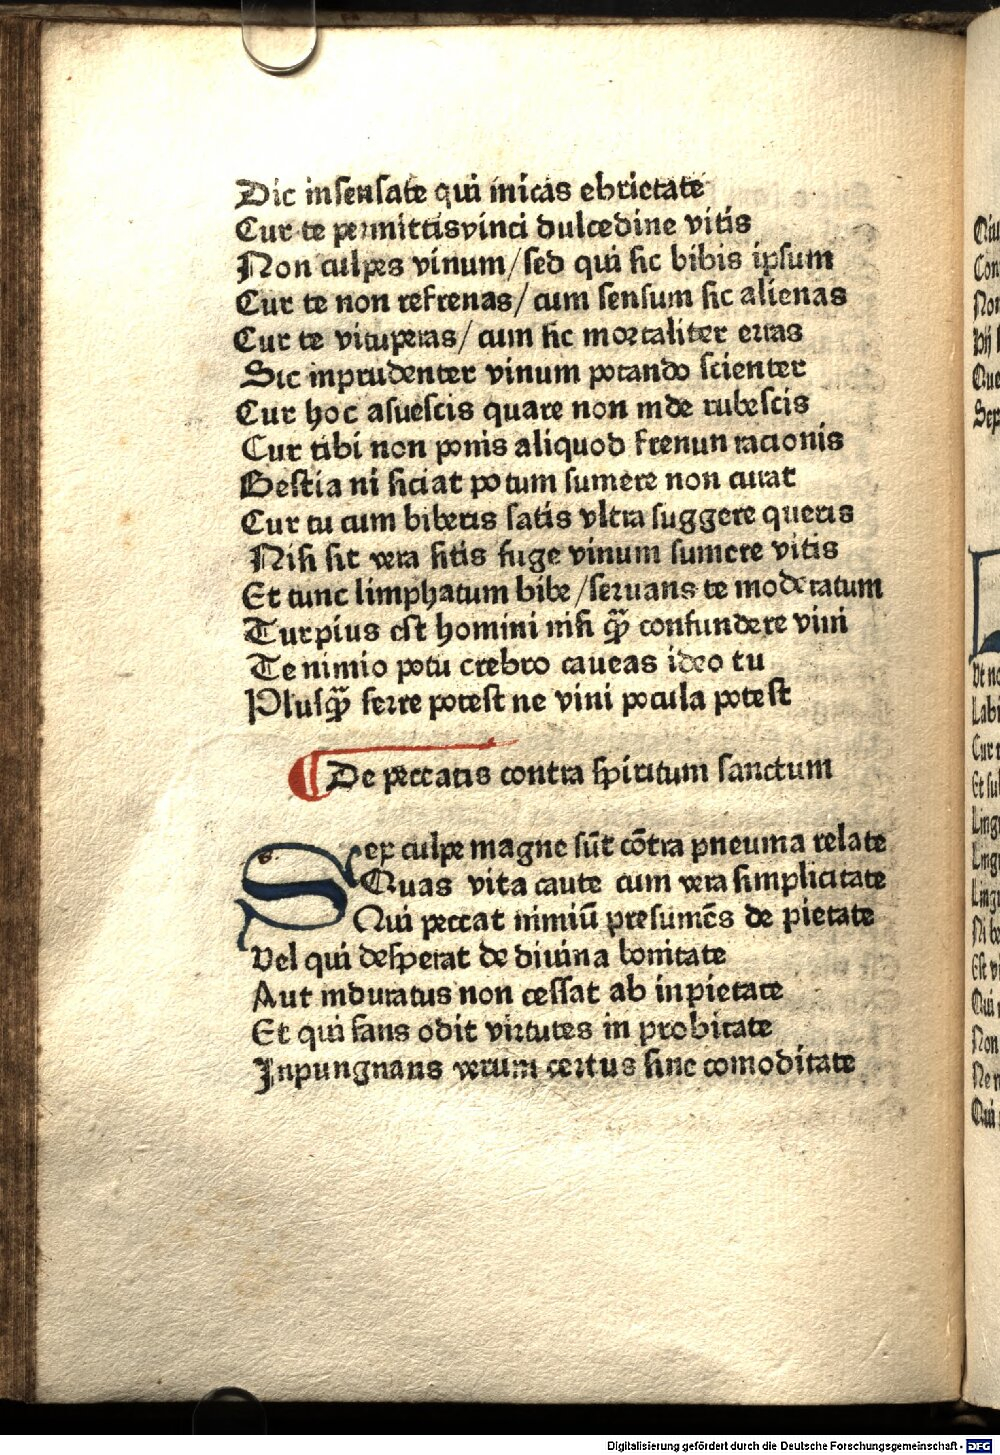 Dic insensate qui micas ebrietate
Cur te permittis vinci dulcedine vitis
Non culpes vinum/sed qui sic bibis ipsum
Cur te non refrenas/cum sensum sic alienas
Cur te vituperas/cum sic mortaliter erras
Sic inprudenter vinum potando scienter
Cur hoc asuescis quare non inde rubescis
Cur tibi non ponis aliquod frenun racionis
Bestia ni siciat potum sumere non curat
Cur tu cum biberis satis vltra suggere queris
Nisi sit vera sitis fuge vinum sumere vitis
Et tunc limphatum bibe/seruans te moderatum
Turpius est homini nisi qͣ̄ confundere vini
Te nimio potu crebro caueas ideo tu
Plusqͣ̄ ferre potest ne vini pocula potest
De peccatis contra spiritum sanctum
Sex culpe magne sūt cōtra pneuma relate
Quas vita caute cum vera simplicitate
Qui peccat nimiū presumēs de pietate
Vel qui desperat de diuina bonitate
Aut induratus non cessat ab inpietate
Et qui fans odit virtutes in probitate
Inpungnans verum certus sine comoditate
Digitalisierung gefördert durch die Deutsche Forschungsgemeinschaft - DFG